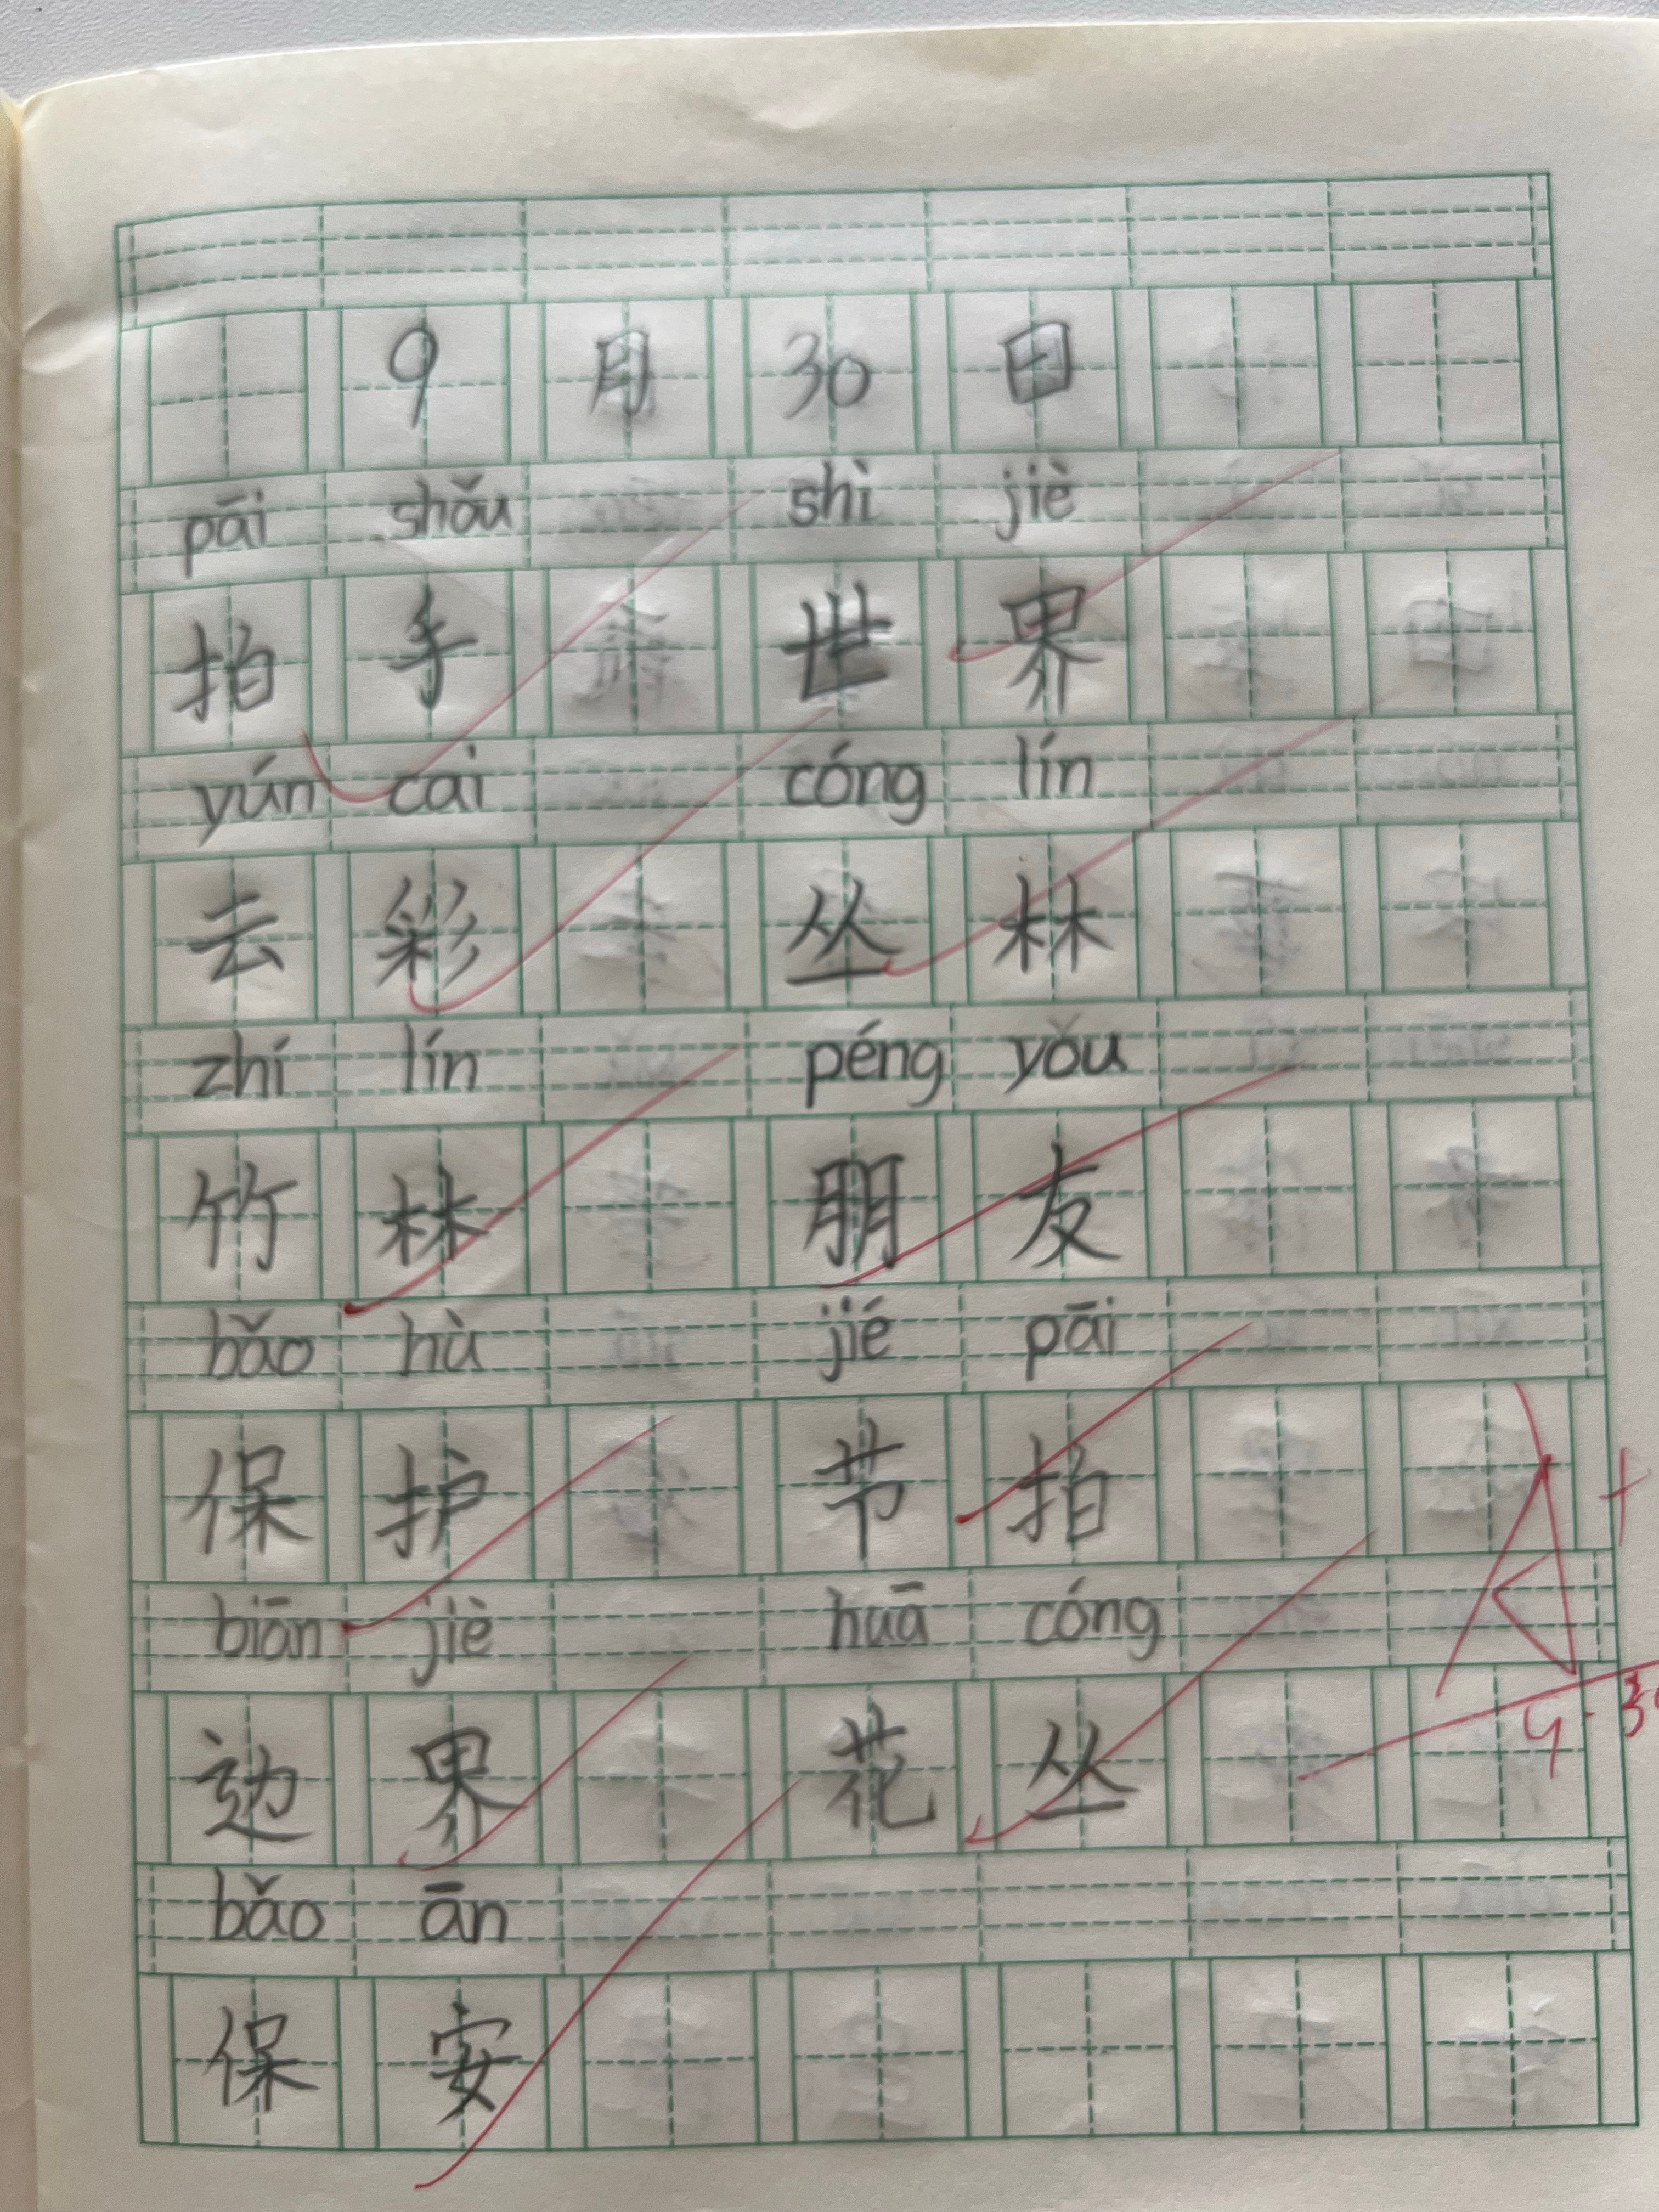 9 月 30 日
pāi shǒu shì jiè
拍 手 世 界
yún cai cóng lín
云 彩 丛 林
zhí lín péng yǒu
竹 林 朋 友
bǎo hù jié pāi
保 护 节 拍
biān jiè huā cóng
边 界 花 丛
bǎo ān
保 安
A+
9.30